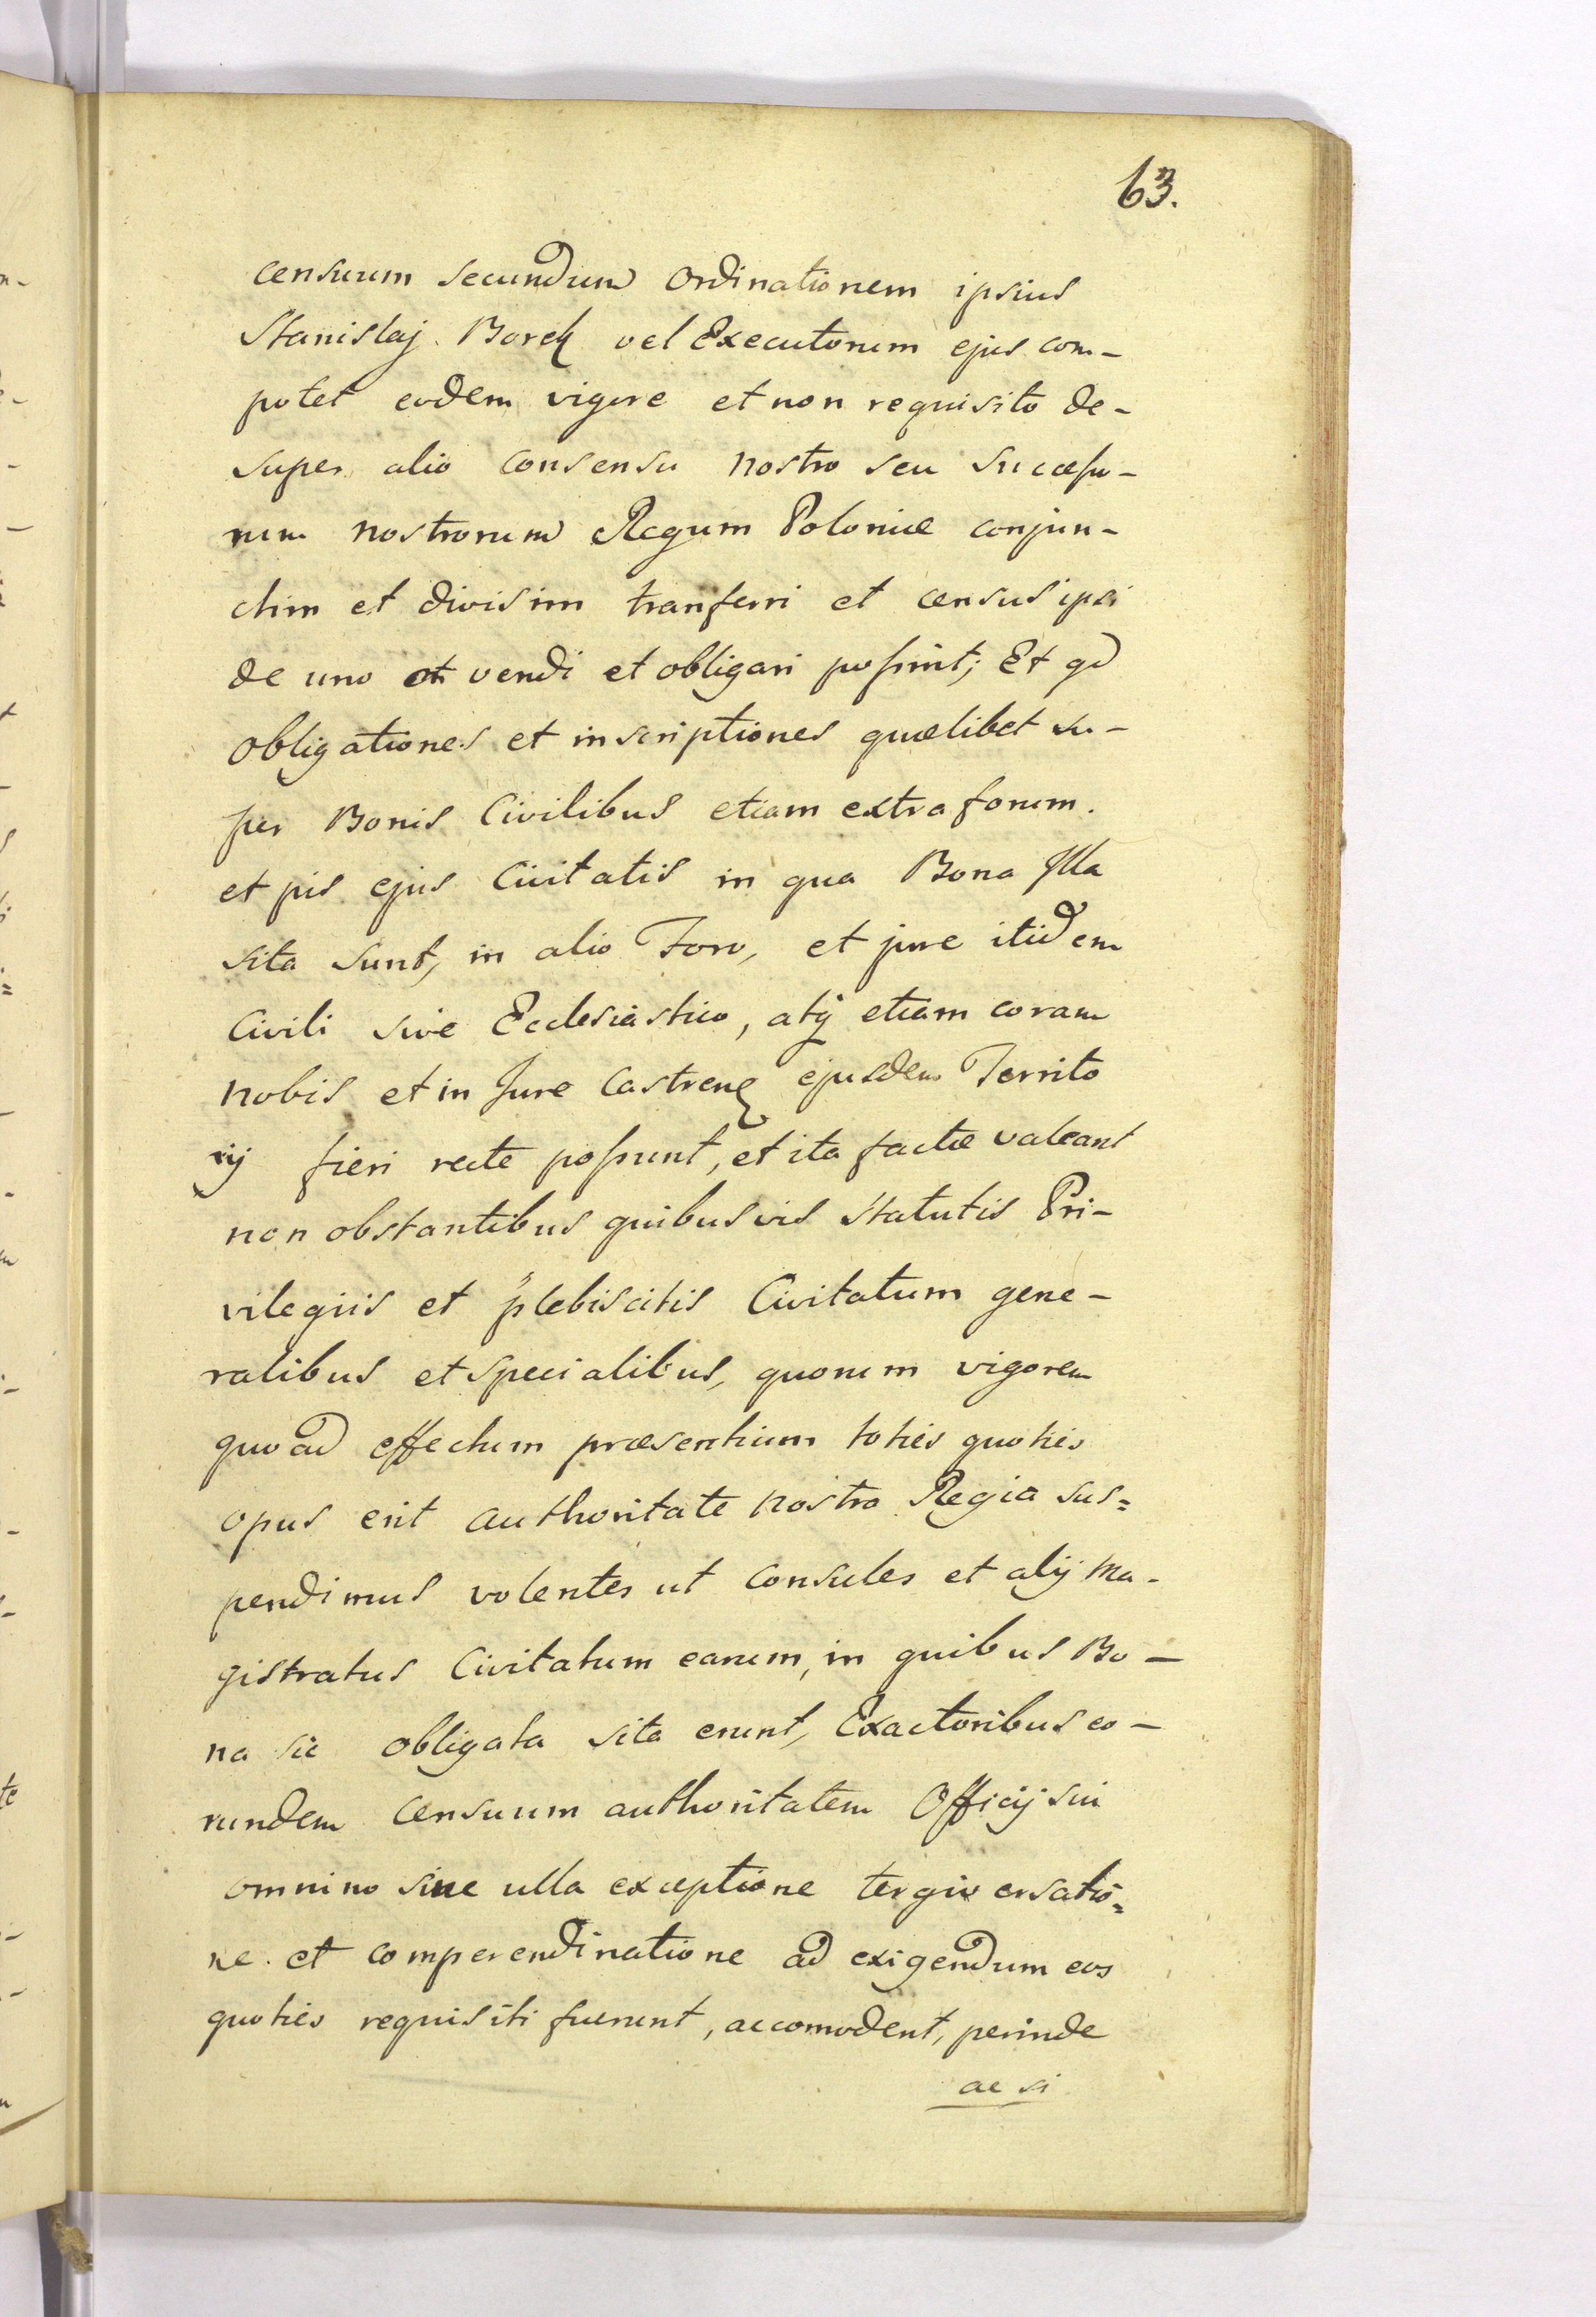 63.
censuum secundum Ordinationem ipsius
Stanislaj Borek vel Executorum ejus com-
potet eodem vigore et non requisito de-
super alio consensu nostro seu succeſso-
rum nostrorum Regum Poloniæ conjun-
ctim et divisim tranferri et census ipsi
de uno et vendi et obligari poſsint; Et qd
obligationes et inscriptiones quælibet su-
per Bonis Civilibus etiam extra forum.
et pis ejus Civitatis in qua Bona Illa
sita sunt, in alio Foro, et jure itidem
Civili sive Ecclesiastico, atq etiam coram
nobis et in Jure Castren ejusdem Territo
rij fieri recte poſsunt, et ita factæ valeant
non obstantibus quibusvis Statutis Pri-
vilegiis et plebiscitis Civitatum gene-
ralibus et specialibus, quorum vigorem
quoad effectum præsentium toties quoties
opus erit authoritate nostra Regia sus=
pendimus volentes ut Consules et alij Ma-
gistratus Civitatum earum, in quibus Bo-
na sic obligata sita erunt, Exactoribus eo-
rundem Censuum authoritatem Officij sui
omnino sine ulla exceptione tergiversatio=
ne. et comperendinatione ad exigendum eos
quoties requisiti fuerunt, accomodent, perinde
ac si